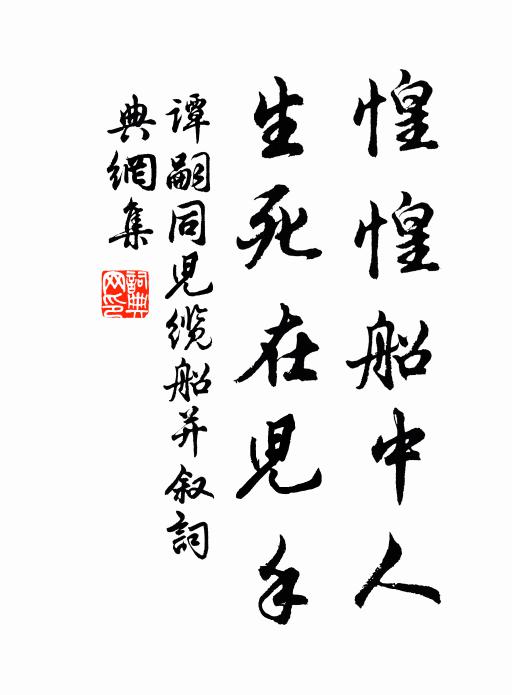 惶惶船中人
生死在兒手
谭嗣同児缆船并叙詞
典網集
詞典
网印